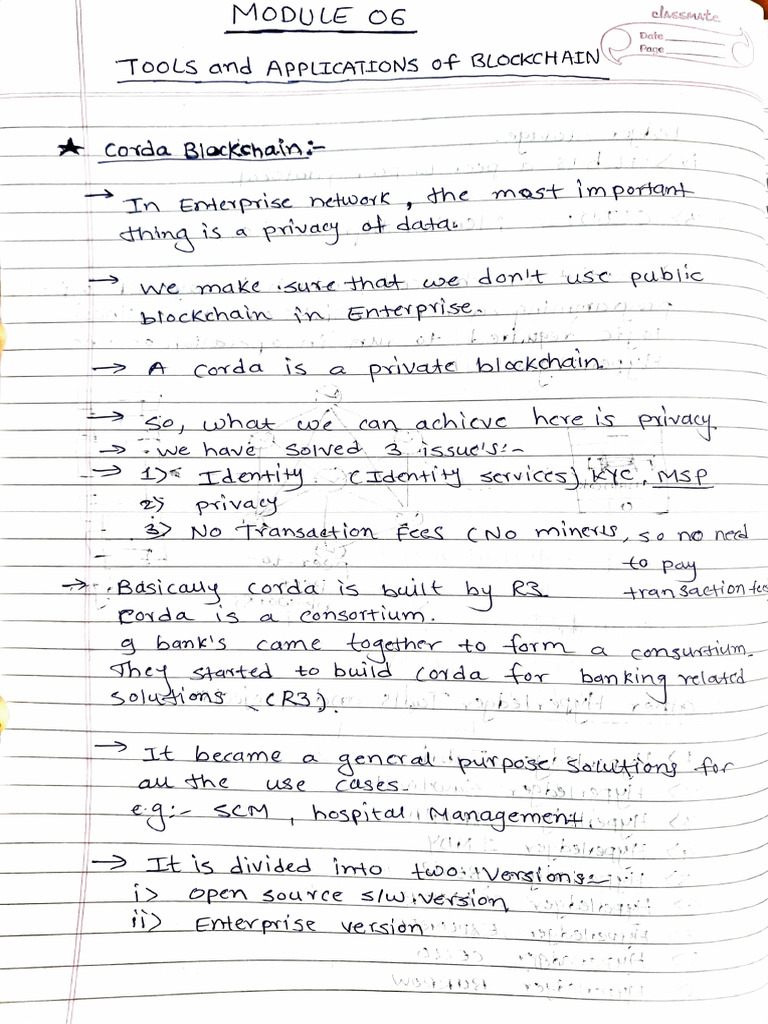 MODULE 06
classmate
Date
Page
TOOLS and APPLICATIONS of BLOCKCHAIN
★ Corda Blockchain:-
→ In Enterprise network, the most important
thing is a privacy of data.
→ we make sure that we don't use public
blockchain in Enterprise.
→ A corda is a private blockchain.
→ so, what we can achieve here is privacy
→ we have solved 3 issue's:-
→ 1) Identity (Identity services) KYC, MSP
2) privacy
3) No Transaction Fees (No miners, so no need
to pay
transaction fees
→ Basically corda is built by R3
corda is a consortium.
9 bank's came together to form a consurtium.
They started to build corda for banking related
solutions (R3).
→ It became a general purpose solutions for
all the use cases.
e.g:- SCM, hospital Management.
→ It is divided into two versions:-
i) open source s/w version
ii) Enterprise version